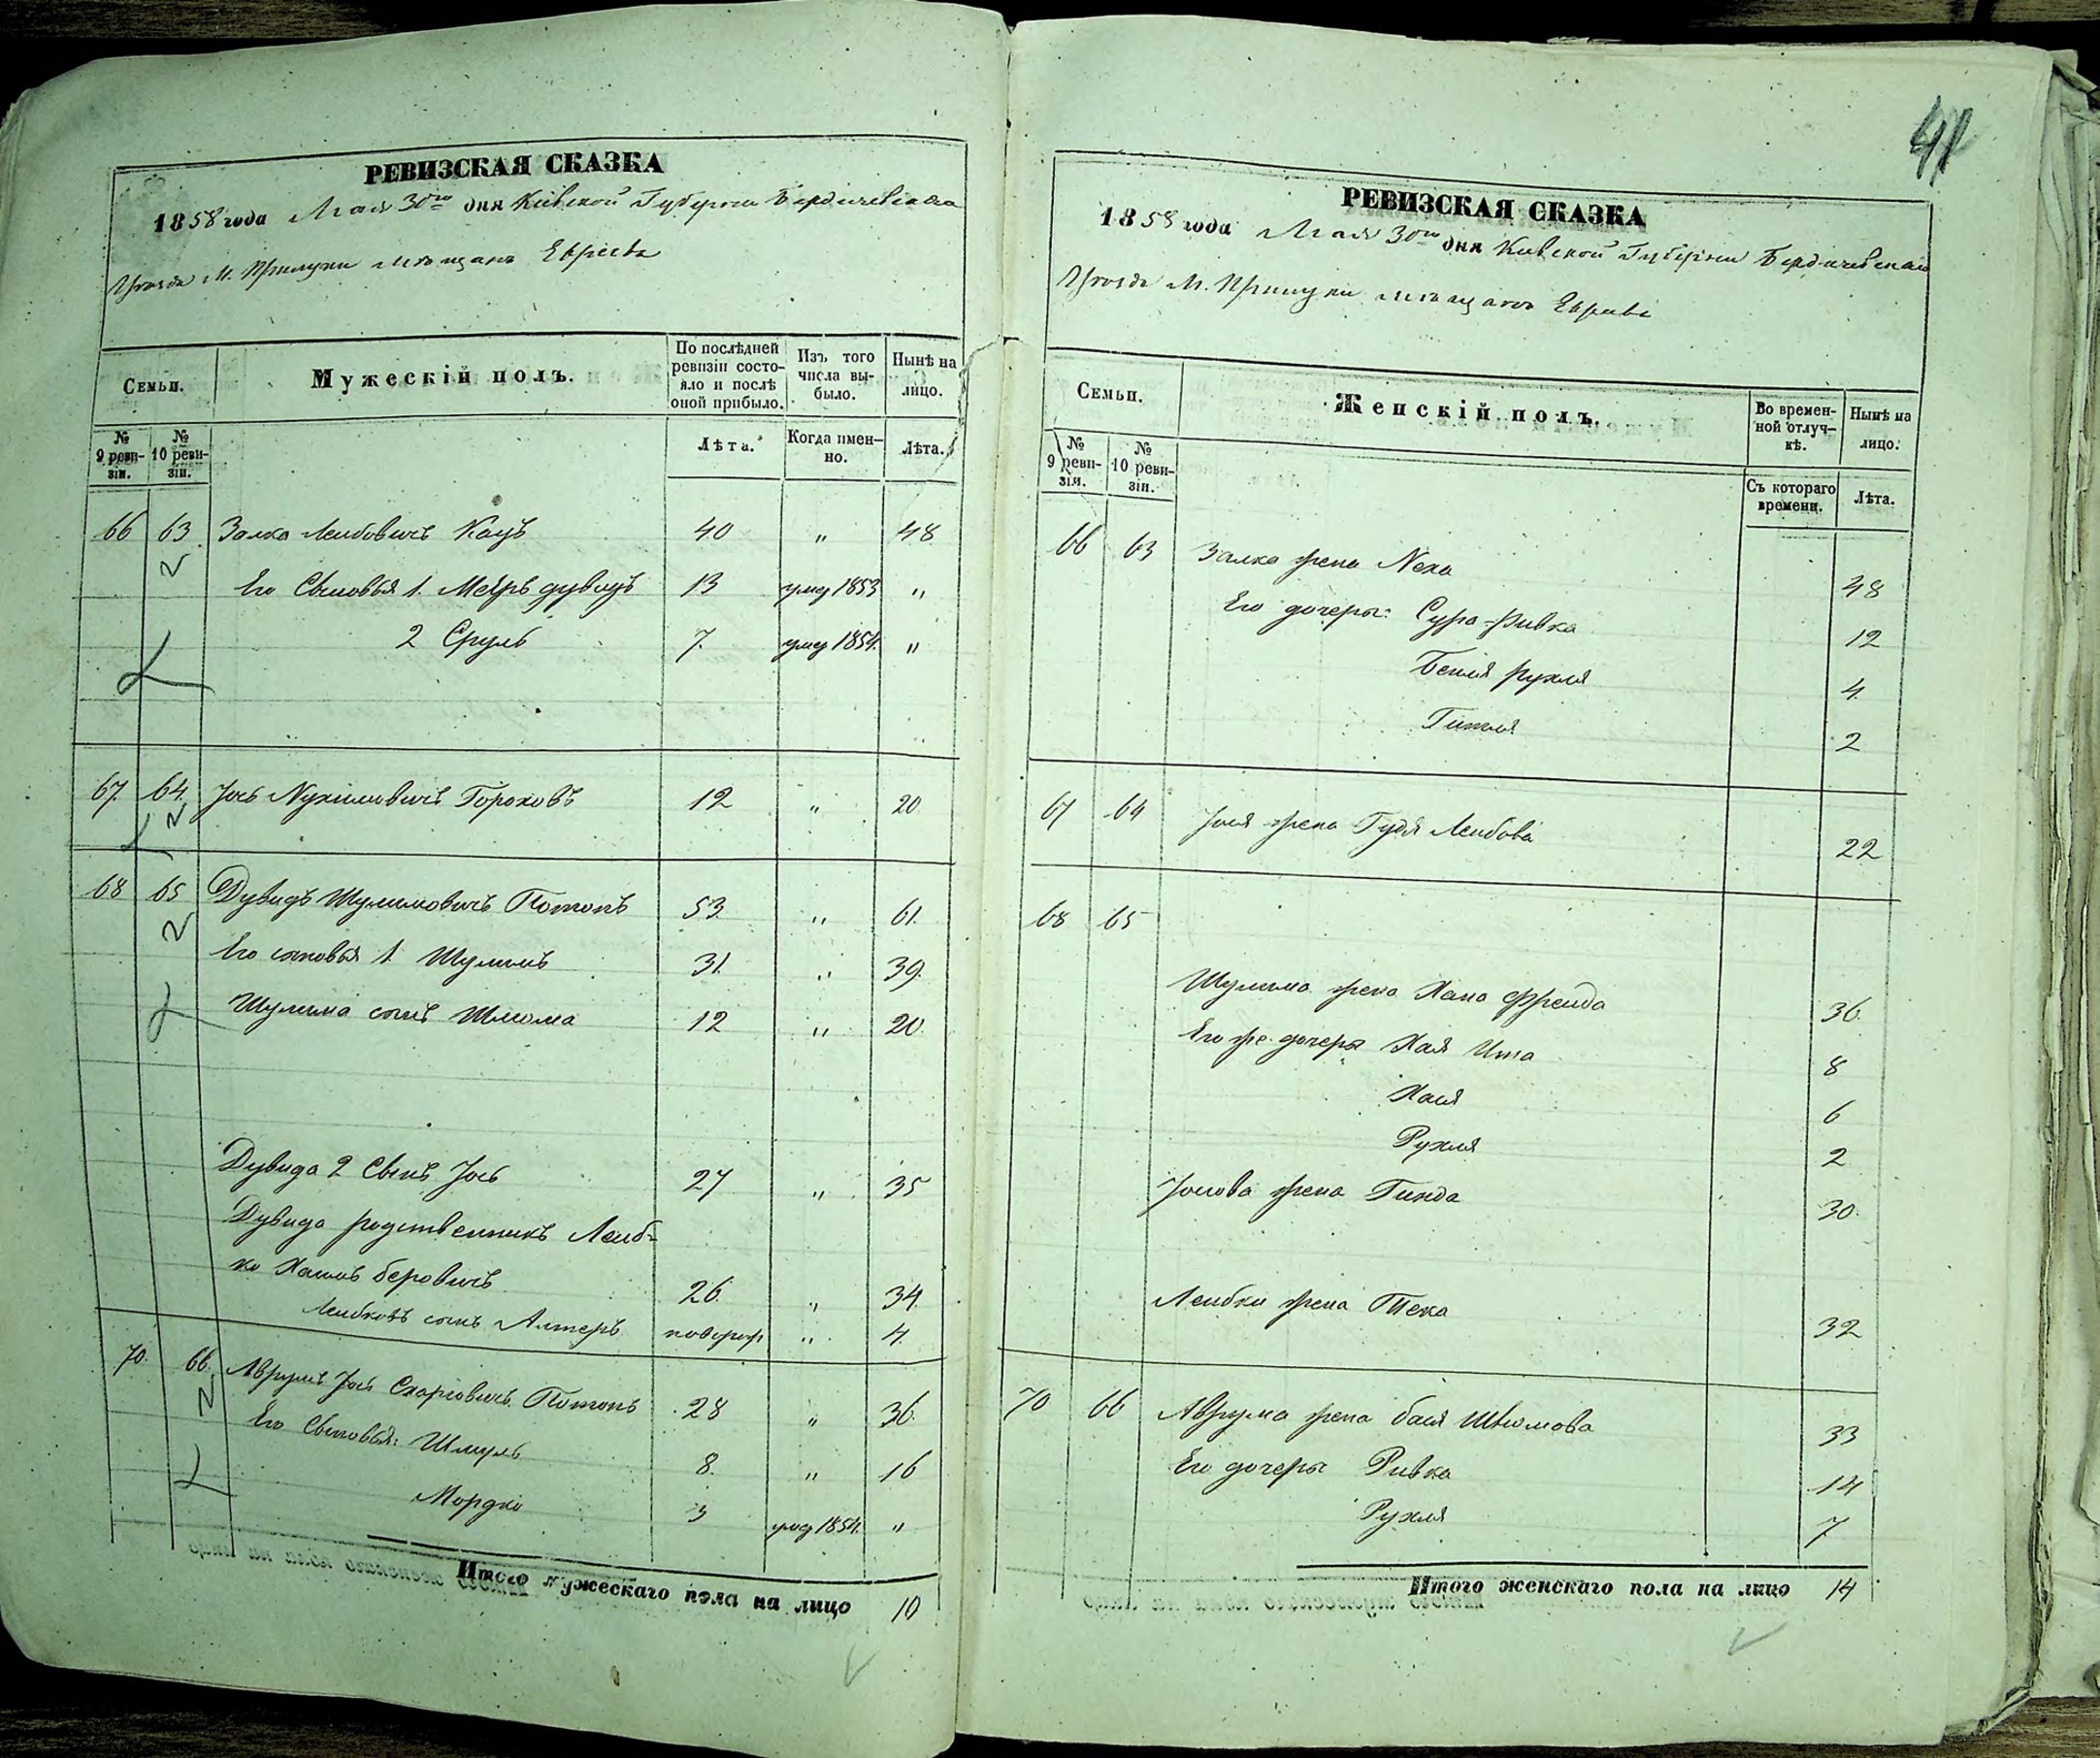 41
РЕВИЗСКАЯ СКАЗКА
1858 года Мая 30го дня Кіевской Губерніи Бердичевскаго
Уѣзда М. Прилуки мѣщанъ Евреевъ
Семьи.
Мужескій полъ.
По послѣдней ревизіи состояло и послѣ оной прибыло.
Изъ того числа выбыло.
Нынѣ на лицо.
№ 9 ревизіи.
№ 10 ревизіи.
Лѣта.
Когда именно.
Лѣта.
66 63 Залка Лейбовичъ Кацъ 40 " 48
Его Сыновья 1. Меиръ дувидъ 13 умер 1853 "
2 Сруль 7. умер 1854. "
67. 64. Іось Нухимовичъ Гороховъ 12 " 20
68 65 Дувидъ Шулимовичъ Потопъ 53 " 61.
Его сыновья 1. Шулимъ 31. " 39.
Шулима сынъ Шлиома 12 " 20.
Дувида 2 Сынъ Іось 27 " 35
Дувида родственникъ Лейб-
ко Хаимъ Беровичъ 26. " 34.
Лейбковъ сынъ Алтеръ новорож " 4
70. 66. Аврумъ Іось Потопъ 28 " 36.
Его Сыновья: Шмуль 8. " 16
Мордко 3 умер 1854. "
Итого мужескаго пола на лицо 10
РЕВИЗСКАЯ СКАЗКА
1858 года Мая 30го дня Кіевской Губерніи Бердичевскаго
Уѣзда М. Прилуки мѣщанъ Евреевъ
Семьи.
Женскій полъ.
Во временной отлучкѣ.
Нынѣ на лицо.
№ 9 ревизіи.
№ 10 ревизіи.
Съ котораго времени.
Лѣта.
66 63 Залка жена Неха 48
Его дочеры: Сура-Ривка 12
Бейля Рухля 4.
Гитля 2
67 64 Іося жена Гудя Лейбова 22
68 65
Шулима жена Хана Фрейда 36.
Его же дочеры Хая Ита 8
Хася 6
Рухля 2
Іосиова жена Гинда 30.
Лейбки жена 32
70 66 Аврума жена бася Шлиомова 33
Его дочеры Ривка 14
Рухля 7
Итого женскаго пола на лицо 14